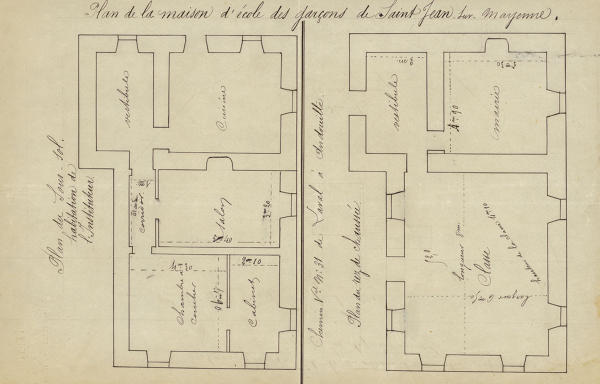 Plan de la maison d'école des garçons de Saint Jean sur Mayenne.
Plan du Sous-sol.
habitation de
l'Instituteur
vestibule
Cuisine
corridor
Salon
4m 30
2m 10
Chambre à
coucher
Cabinet
Chemin Val No 31 de Laval à Andouillé
Plan du rez de chaussée
vestibule
2 m.
mairie
4m 90
Classe
longueur 8m
largeur 6m